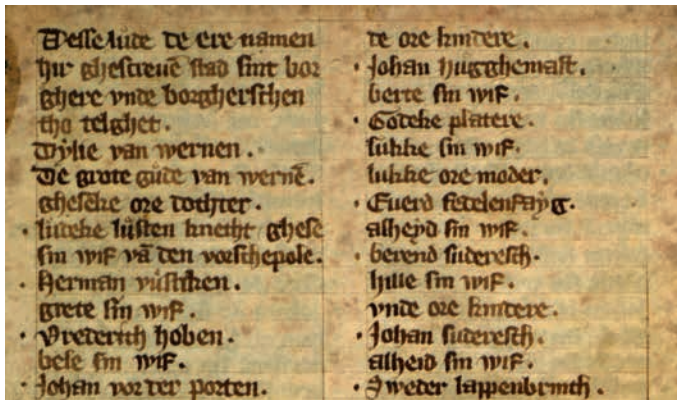 Desse lude de ere namen
hir ghescreuē stad sint bor
ghere vnde borgherschen
tho telghet.
Wylie van wernen.
De grote gůde van wernē.
gheseke ore dochter.
· ludeke lůsten knecht ghese
sin wif vā den vorschepole.
· Herman vůstiken.
grete sin wif.
· Vrederich hoben.
bese sin wif.
· Johan vor der porten.
de ore kindere.
· Johan hugghemast.
berte sin wif.
· Godeke platere.
lukke sin wif.
lukke ore moder.
· Euerd
alheyd sin wif.
· berend suderesch.
hille sin wif.
vnde ore kindere.
· Johan suderesch.
alheid sin wif.
· Sweder lappenbrinch.